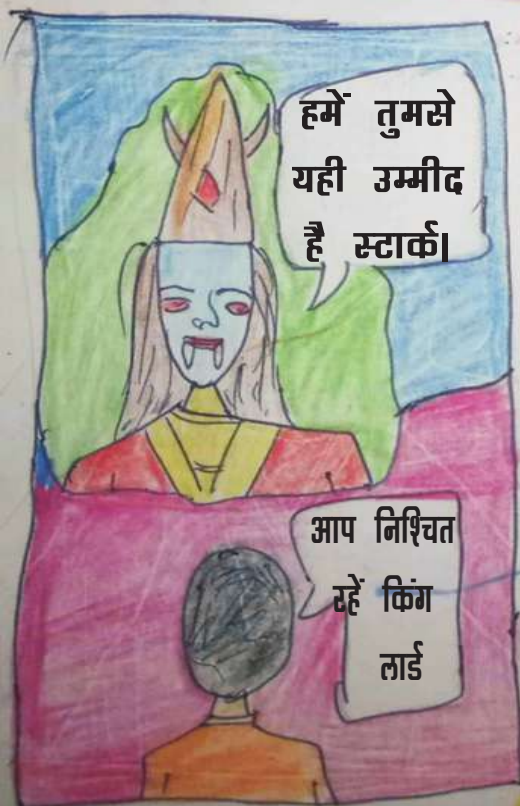 हमें तुमसे
यही उम्मीद
है स्टार्क।
आप निश्चित
रहें किंग
लार्ड